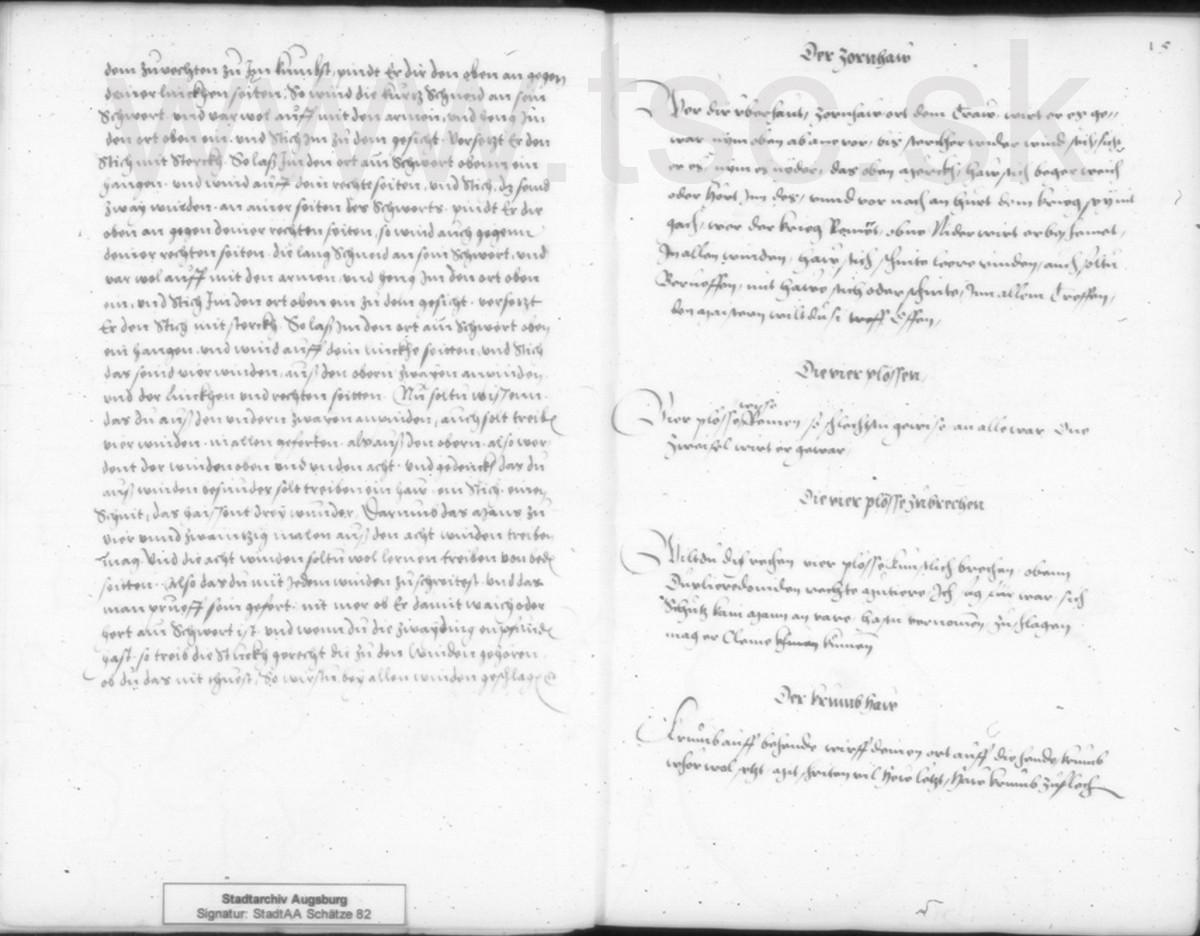 dem zu rechten zu Im kumbst, pindt Er dir den oben an gegen
deiner linckhen seiten, So wind die kurtz Schneid an sein
Schwert und var wol auff mit den armen, und heng Im
den ort oben ein, und Stich Im zu dem gesicht. Versetzt Er den
Stich mit Sterckh, So lasz Im den ort am Schwert obenn ein
hangen, und wind auff dein rechte seiten, und Stich, dz seind
zway winden, an ainer seiten des Schwerts, pindt Er dir
oben an gegen deiner rechten seiten, so wind auch gegenn
deiner rechten seiten, die lang Schneid an sein Schwert, und
var wol auff mit den armen, und heng Im den ort oben
ein, und Stich Im den ort oben ein zu dem gesicht. versetzt
Er den Stich mit sterckh, So lasz Im den ort am Schwert oben
ein hangen, und wind auff dein linckhe seitten, und Stich
das seind vier winden, ausz den obern zwayen anwinden,
von der linckhen und rechten seitten. Nu soltu wissenn
das du ausz den undern zwayen anwinden, auch solt treiben
vier winden, in allen geferten, als ausz den obern, also wer-
dent der winden oben und unden acht, und gedenckh das du
ausz winden besunder solt treiben ein haw, ein Stich, einen
Schnit, das haissent drey wunder, Darinnen das mans zu
vier unnd zwaintzig malen ausz den acht winden treiben
mag, Und die acht winden soltu wol lernen treiben von beden
seitten. Also das du mit Jedem winden zu schreitest, und das
man prueff sein gefert, nit mer ob Er damit waich oder
hert am Schwert ist, und wenn du die zway ding enpfunden
hast, so treib die Stuckh gerecht die zu den Winden gehoren.
ob du das nit thuest, So wirstu bey allen winden geschlagen
15
Der zornhaw
Wer dir uberhaut, zornhaw ort dem Traw, wirt er es ge-
war, nym oben ab ane var, bis sterckher wider wind stich, sicht
er es, nym es nider, das eben merckh, haw stich leger waich
oder hört, Im des, unnd vor nach an hurt dem krieg sey nit
gach, wer der krieg Remet, oben Nider wirt er beschemet,
In allen winden, haw, stich, schnite, leere vinden, auch soltu
Brueffen, mit hawe stich oder schnite, Inn allem Treffen,
den maistern wiltdu si treff Effen,
Die vier plössen,
Vier plösse wisse Remen, so schlechstu gewise, an alle war One
zweifel wirt er gewar,
Die vier plösse zubrechen
Wiltdu dich rechen vier plösse kunstlich brechen, obenn
Dupliere do niden rechte mutiere, Ich sag war sich
Schutz kain mann an vare, hastu vernomen, zu schlagen
mag er Claine kumen kunen
Der krumbhaw
Krumb auff behende, wirff deinen ort auff die hende, krumb
wer wol setzt, mit schriten vil hewe letzt, haw krumb zuflech
Stadtarchiv Augsburg
Signatur: StadtAA Schätze 82
www.tsc.sk